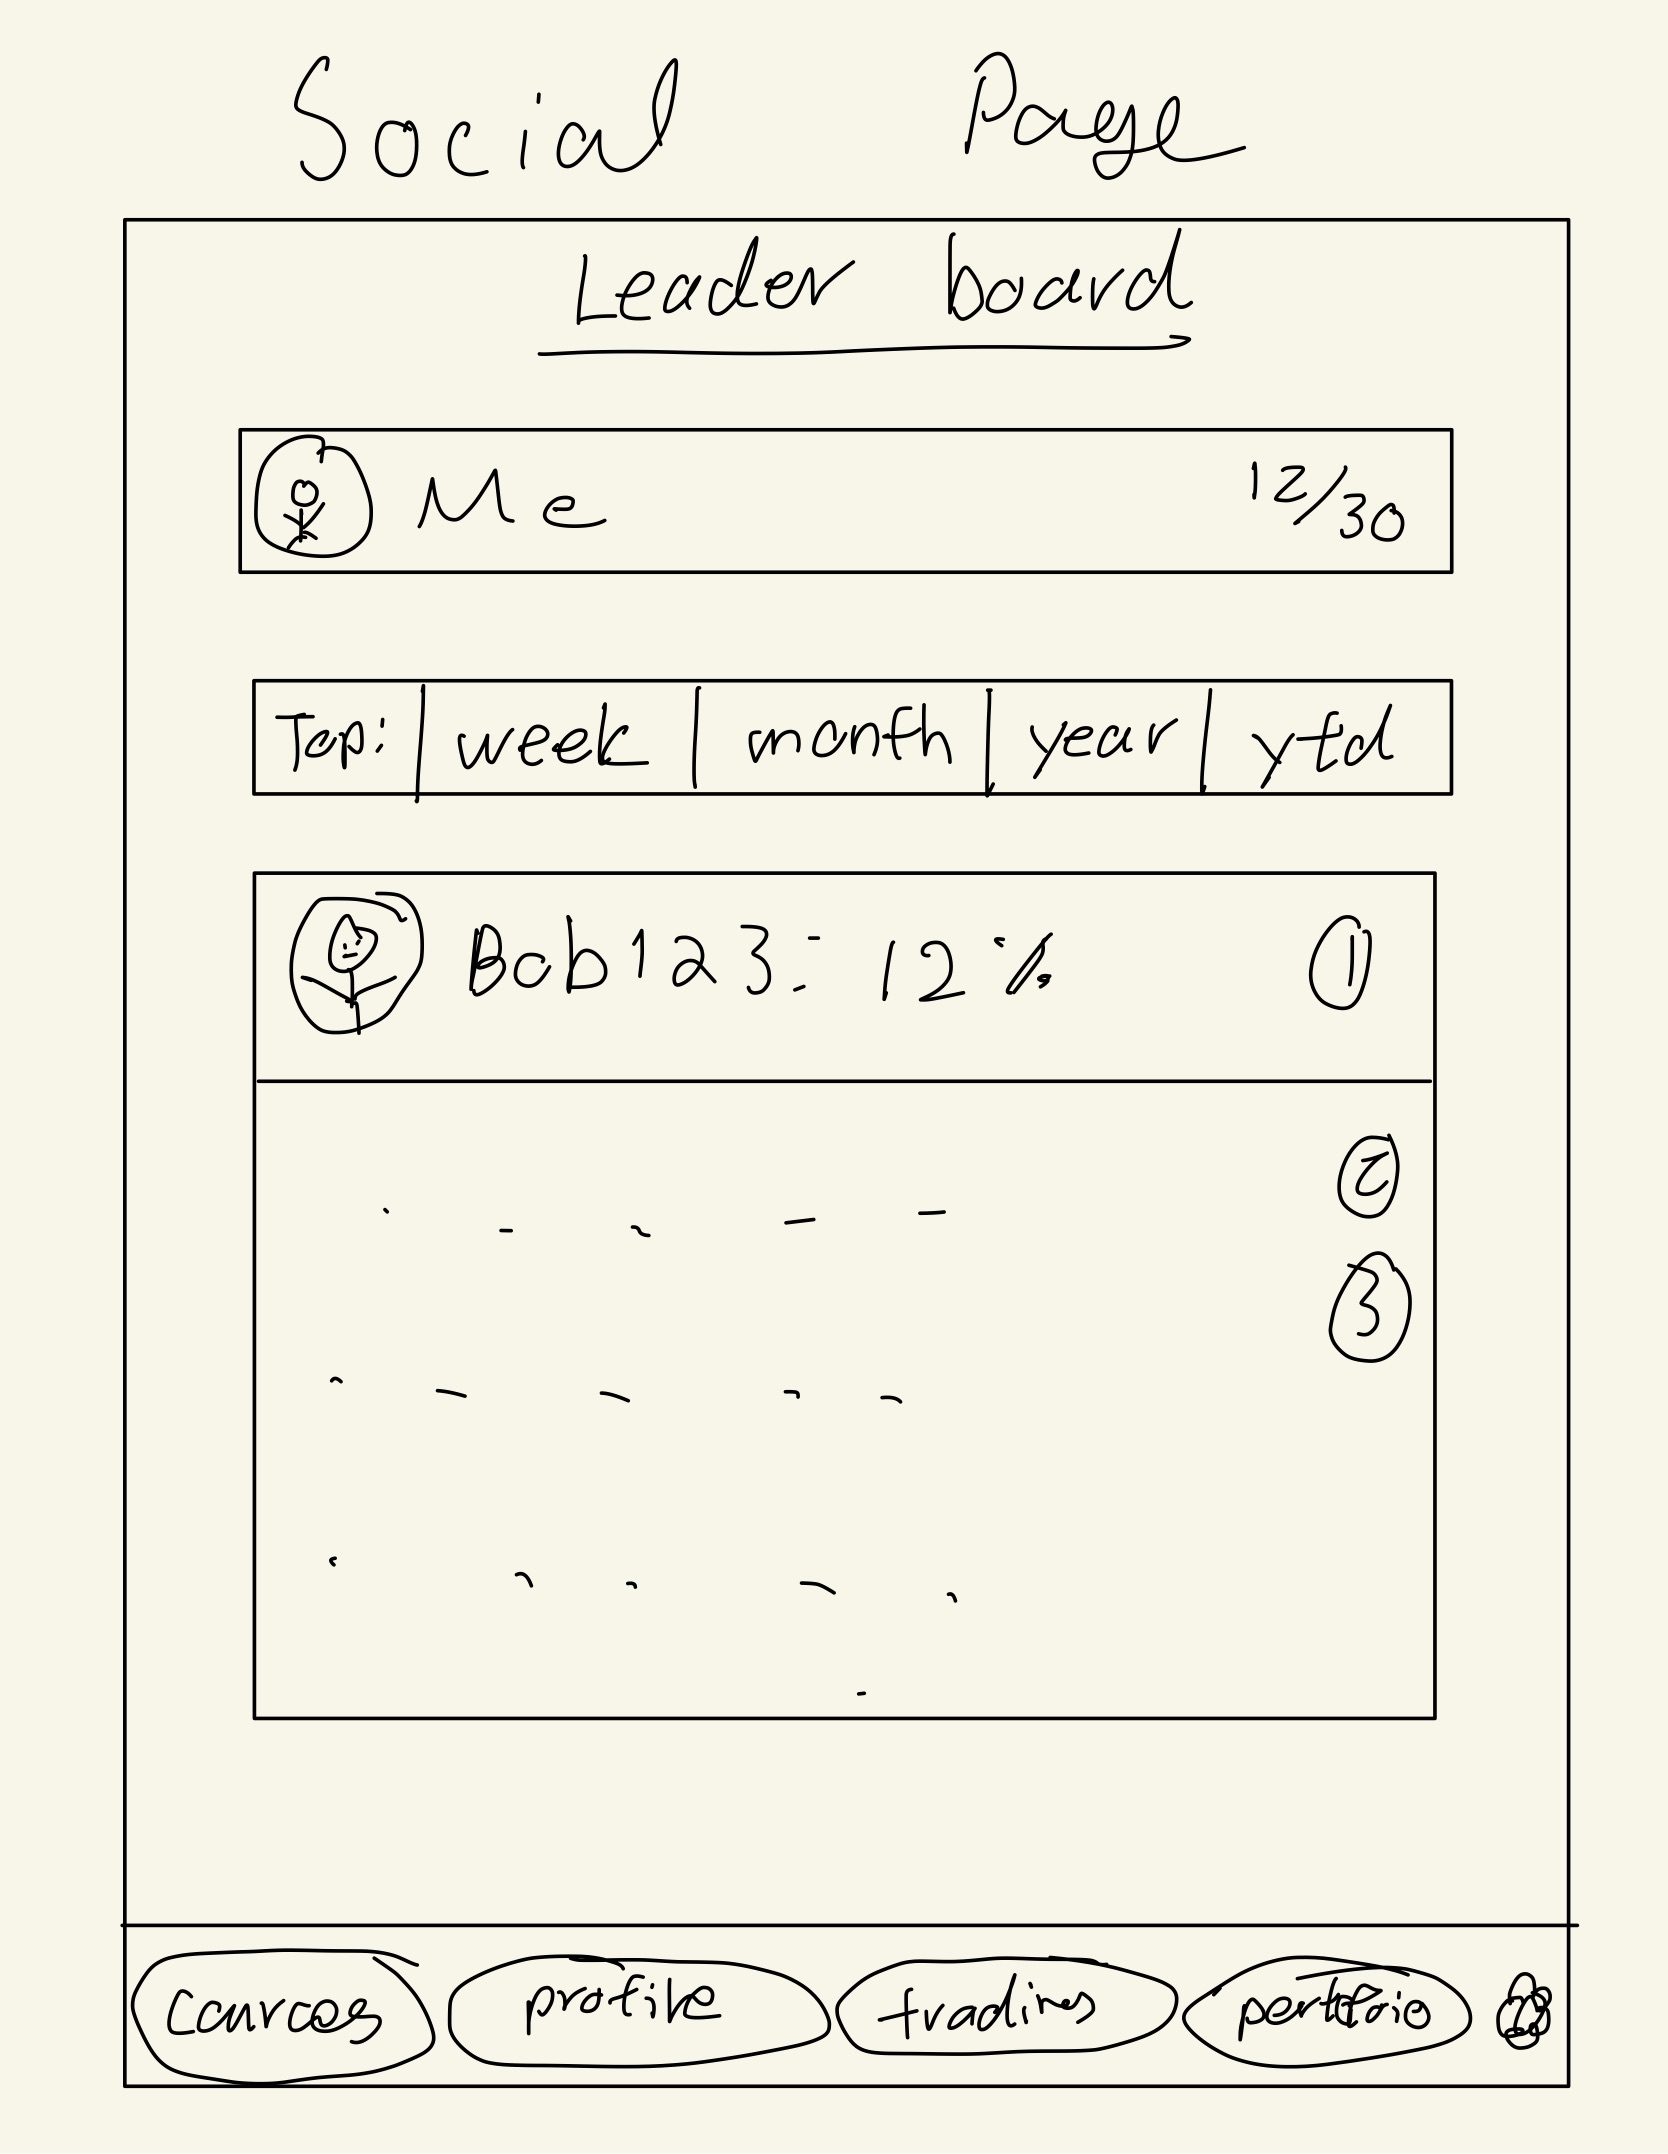 Social Page
Leader board
Me 12/30
Top: week month year ytd
Bob123: 12% 1
2
3
profile trading